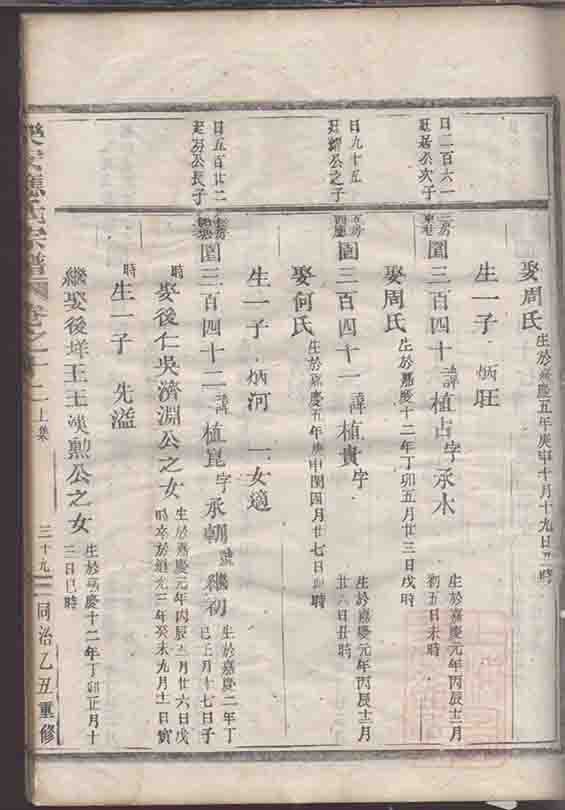 娶周氏 生於嘉慶五年庚申十月十九日丑時
生一子 炳旺
日二百六一
旺居公次子
三房
圖三百四十 諱植占字承木 生於嘉慶元年丙辰十二月
初五日未時
娶周氏 生於嘉慶十二年丁卯五月廿三日戌時
日九十五
旺耀公之子
五房
圖三百四十一 諱植貴字 生於嘉慶元年丙辰十二月
廿六日丑時
娶何氏 生於嘉慶五年庚申閏四月廿七日 時
生一子 炳河 一女適
日五百廿二
公長子
圖三百四十二 諱植崑字承朝號繼初 生於嘉慶二年丁
巳正月十七日子
時
娶後仁吳濟淵公之女 生於嘉慶元年丙辰 月廿六日戌
時卒於道光三年癸未九月十一日寅
時
生一子 先溢
繼娶後垟王王英勲公之女 生於嘉慶十二年丁卯正月十
二日巳時
宗譜 卷之十二上集 三十九 同治乙丑重修